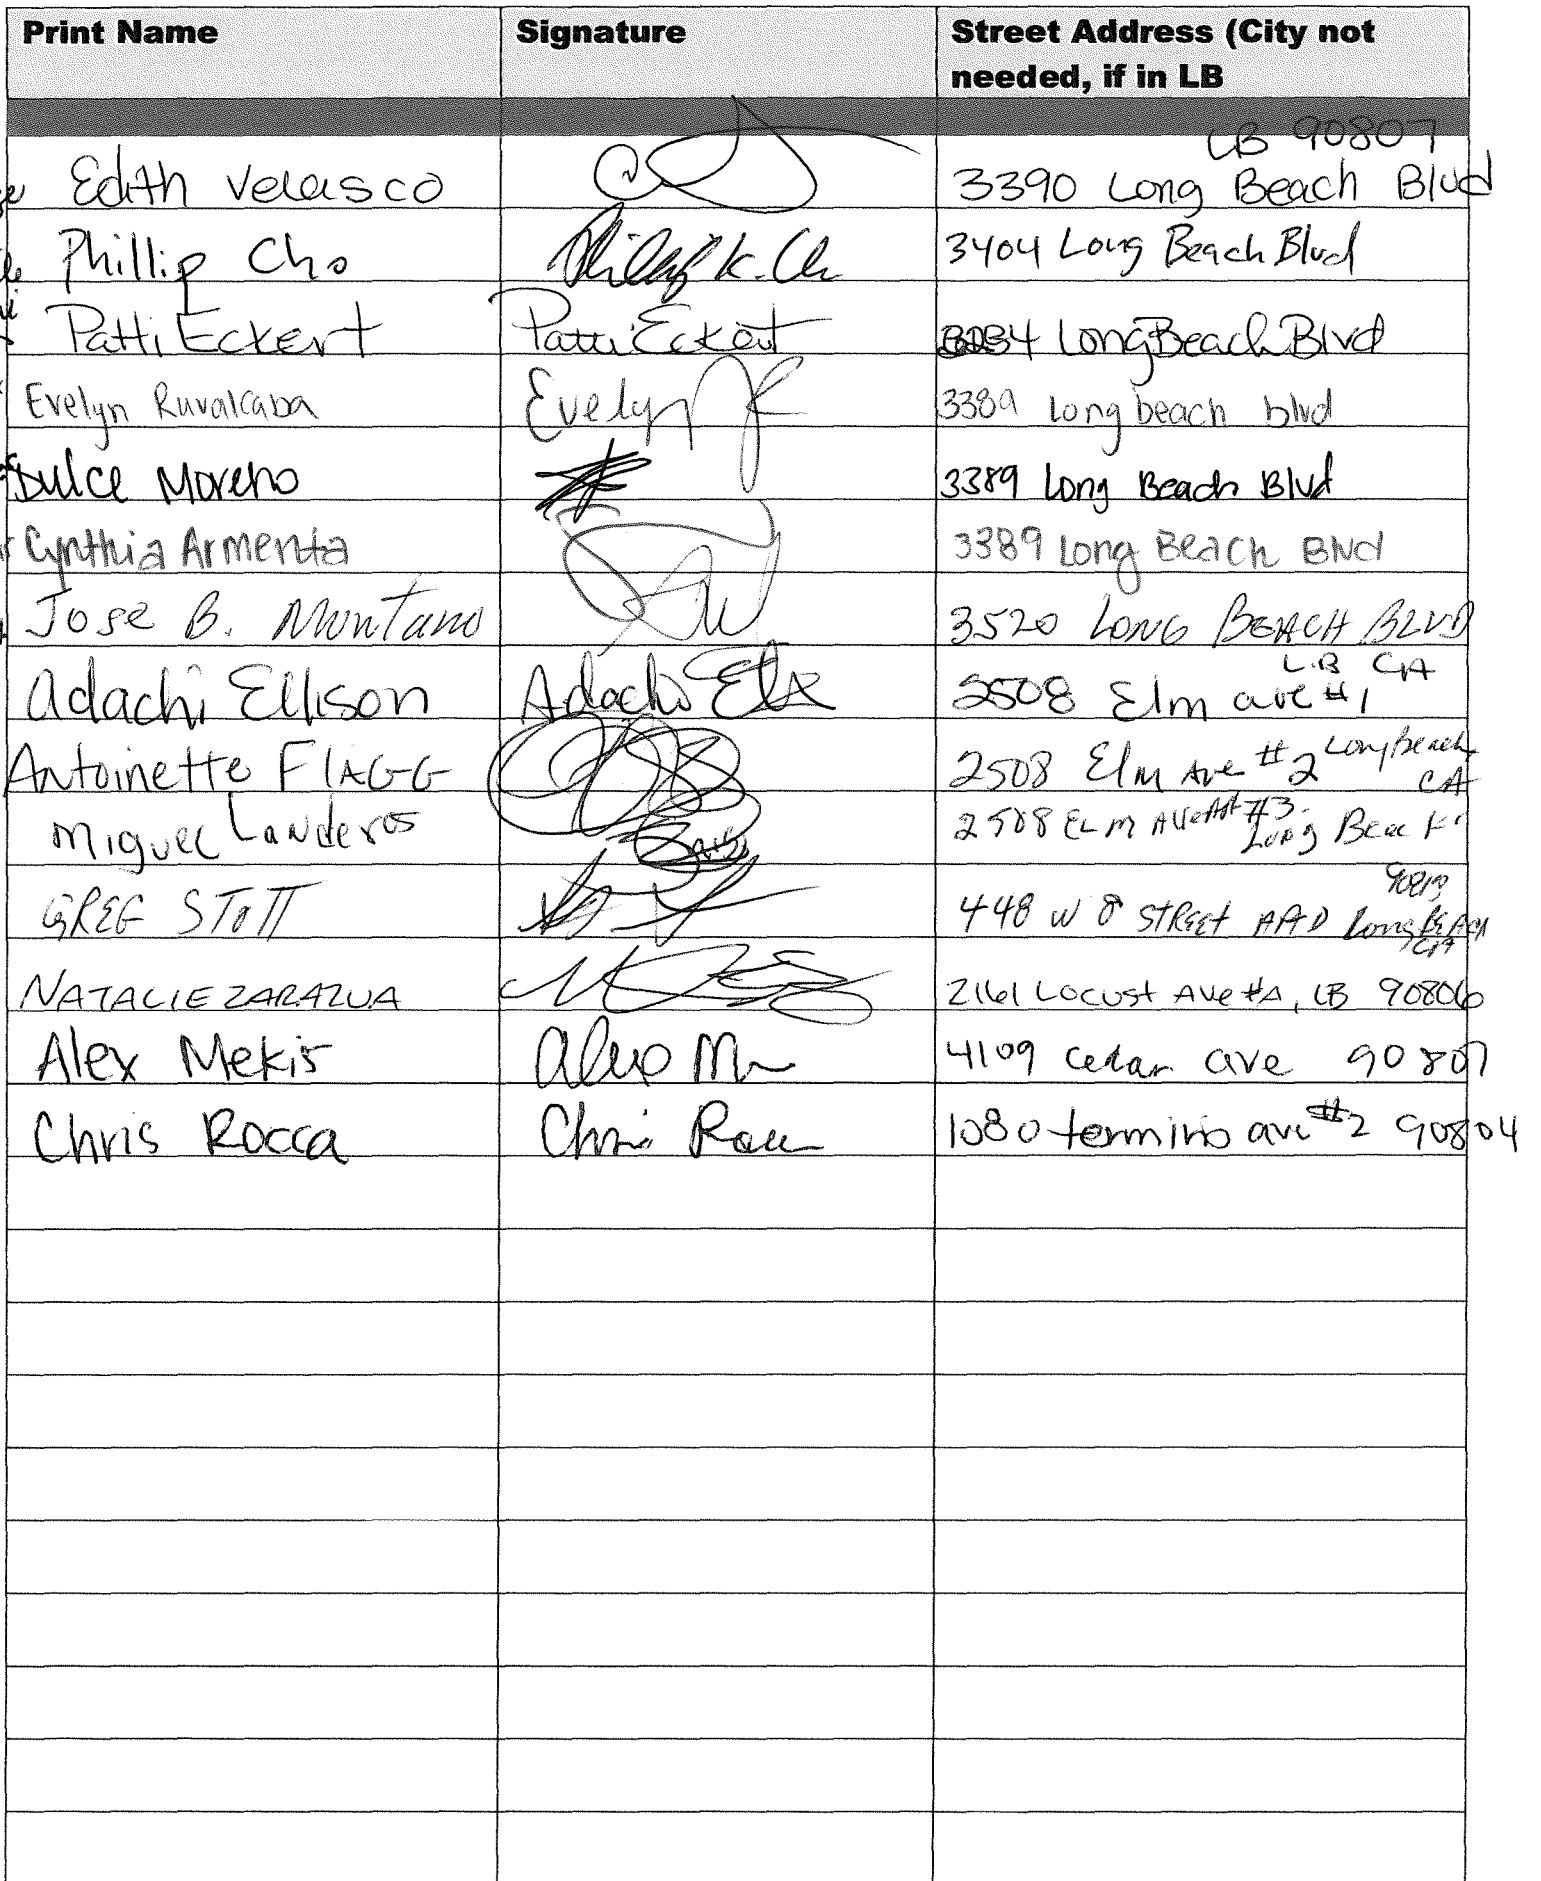 Print Name Signature Street Address (City not
needed, if in LB
LB 90807
Edith Velasco 3390 Long Beach Blvd
Phillip Cho Phillip K. Ch 3404 Long Beach Blvd
Patti Eckert Patti Eckert Long Beach Blvd
Evelyn Ruvalcaba Evelyn R 3389 Long beach blvd
Dulce Moreno 3389 Long Beach Blvd
Cynthia Armenta 3389 Long Beach Blvd
Jose B. Montano 3520 LONG BEACH BLVD
L.B CA
Adachi Ellison Adachi 2508 Elm ave #1
Antoinette FlAGG 2508 Elm Ave #2 Long Beach
CA
Miguel Landeros 2508 ELM AVE Apt #3.
Long Beach
90813
GREG STOTT 448 W 8 STREET Long BEACH
CA
NATALIE ZARAZUA 2161 Locust Ave #A, LB 90806
Alex Mekis Alex M 4109 cedar ave 90807
Chris Rocca Chris Rocca 1080 termino ave #2 90804